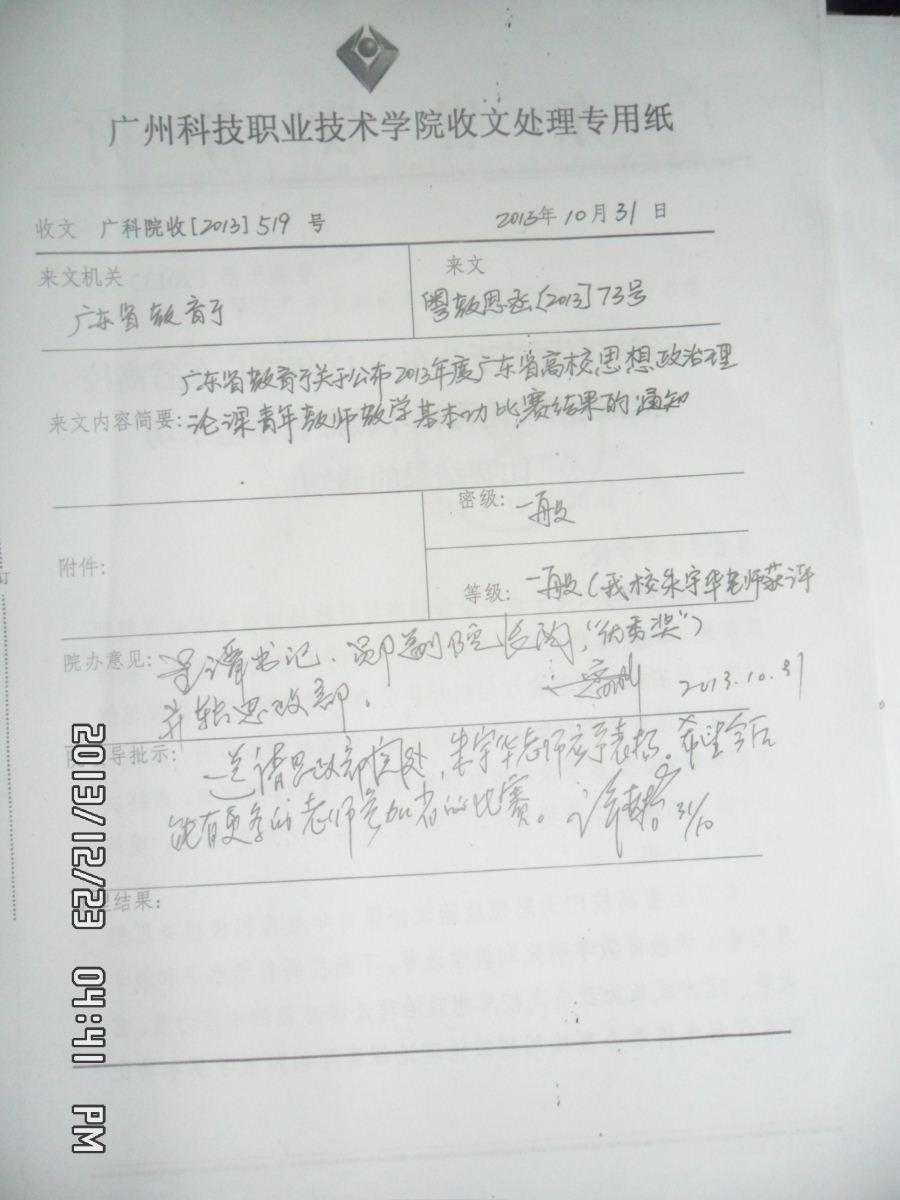 广州科技职业技术学院收文处理专用纸
收文 广科院收[2013]519 号 2013年10月31日
来文机关
广东省教育厅
来文
粤教思函[2013]73号
广东省教育厅关于公布2013年度广东省高校思想政治理
来文内容简要:论课青年教师教学基本功比赛结果的通知
附件:
密级: 一般
等级: 一般(我校朱宇华老师获评
"优秀奖")
院办意见: 呈谭书记、郑副院长阅,
并转思政部。
2013.10.31
导批示:
送请思政部阅处,朱宇华老师应予表扬。希望今后
能有更多的老师参加省的比赛。
31/10
结果:
2013/12/23 04:41 PM